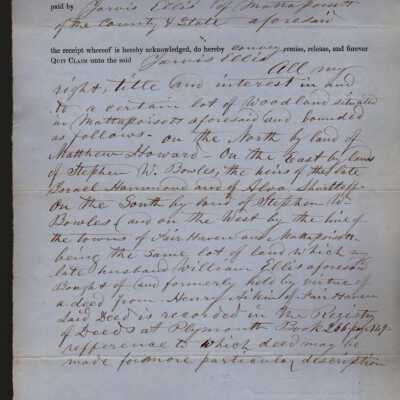 paid by Jarvis Ellis of Mattapoisett
of the County & State aforesaid
the receipt whereof is hereby acknowledged, do hereby convey, remise, release, and forever
QUIT CLAIM unto the said Jarvis Ellis
All my
right, title and interest in and
to a certain lot of Woodland situated
in Mattapoisett aforesaid and bounded
as follows - On the North by land of
Matthew Howard - On the East by land
of Stephen W. Bowles, the heirs of the late
Israel Hammond and of Alva Shurtleff
On the South by land of Stephen W.
Bowles (and on the West by the line of
the towns of Fair Haven and Mattapoisett
being the same lot of land which my
late husband William Ellis aforesaid
Bought of (and formerly held by virtue of
a deed from Henry Aikin of Fair Haven
Said Deed is recorded in the Registry
of Deeds at Plymouth Book 266 page 149.
refference to which deed may be
made for more particular description